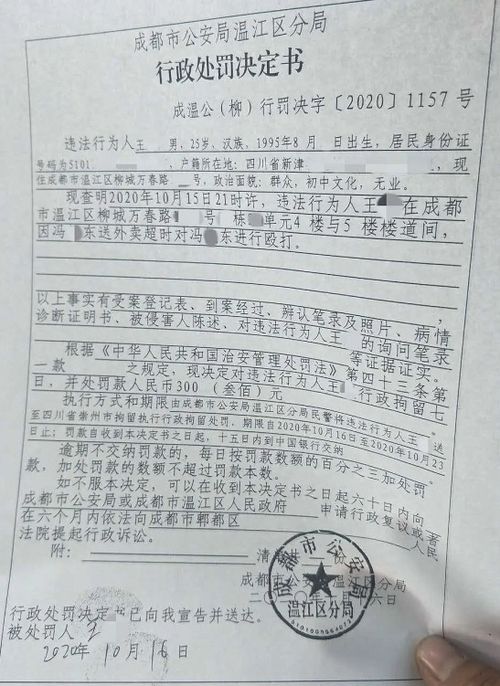 成都市公安局温江区分局
行政处罚决定书
成温公（柳）行罚决字〔2020〕1157 号
违法行为人王 男，25岁，汉族，1995年8月 日出生，居民身份证
号码为5101 ，户籍所在地：四川省新津 ，现
住成都市温江区柳城万春路 号，政治面貌：群众，初中文化，无业。
现查明2020年10月15日21时许，违法行为人王 在成都
市温江区柳城万春路 号 栋 单元4 楼与5 楼楼道间，
因冯 东送外卖超时对冯 东进行殴打。
以上事实有受案登记表、到案经过、辨认笔录及照片、病情
诊断证明书、被侵害人陈述、对违法行为人王 的询问笔录
等证据证实。
根据《中华人民共和国治安管理处罚法》第四十三条第
一款 之规定，现决定对违法行为人王 行政拘留七
日，并处罚款人民币300 （叁佰）元
执行方式和期限由成都市公安局温江区分局民警将违法行为人王 送
至四川省崇州市拘留所执行行政拘留处罚，期限自2020年10月16日至2020年10月23
日止；罚款自收到本决定书之日起，十五日内到中国银行交纳
逾期不交纳罚款的，每日按罚款数额的百分之三加处罚
款，加处罚款的数额不超过罚款本数。
如不服本决定，可以在收到本决定书之日起六十日内向
成都市公安局或成都市温江区人民政府 申请行政复议或者
在六个月内依法向成都市郫都区 人民
法院提起行政诉讼。
附： 清 份
成都市公安局温江区分局
二〇 〇年 月 六日
成都市公安局
温江区分局
行政处罚决定书已向我宣告并送达。
被处罚人 王
2020年 10月 16日